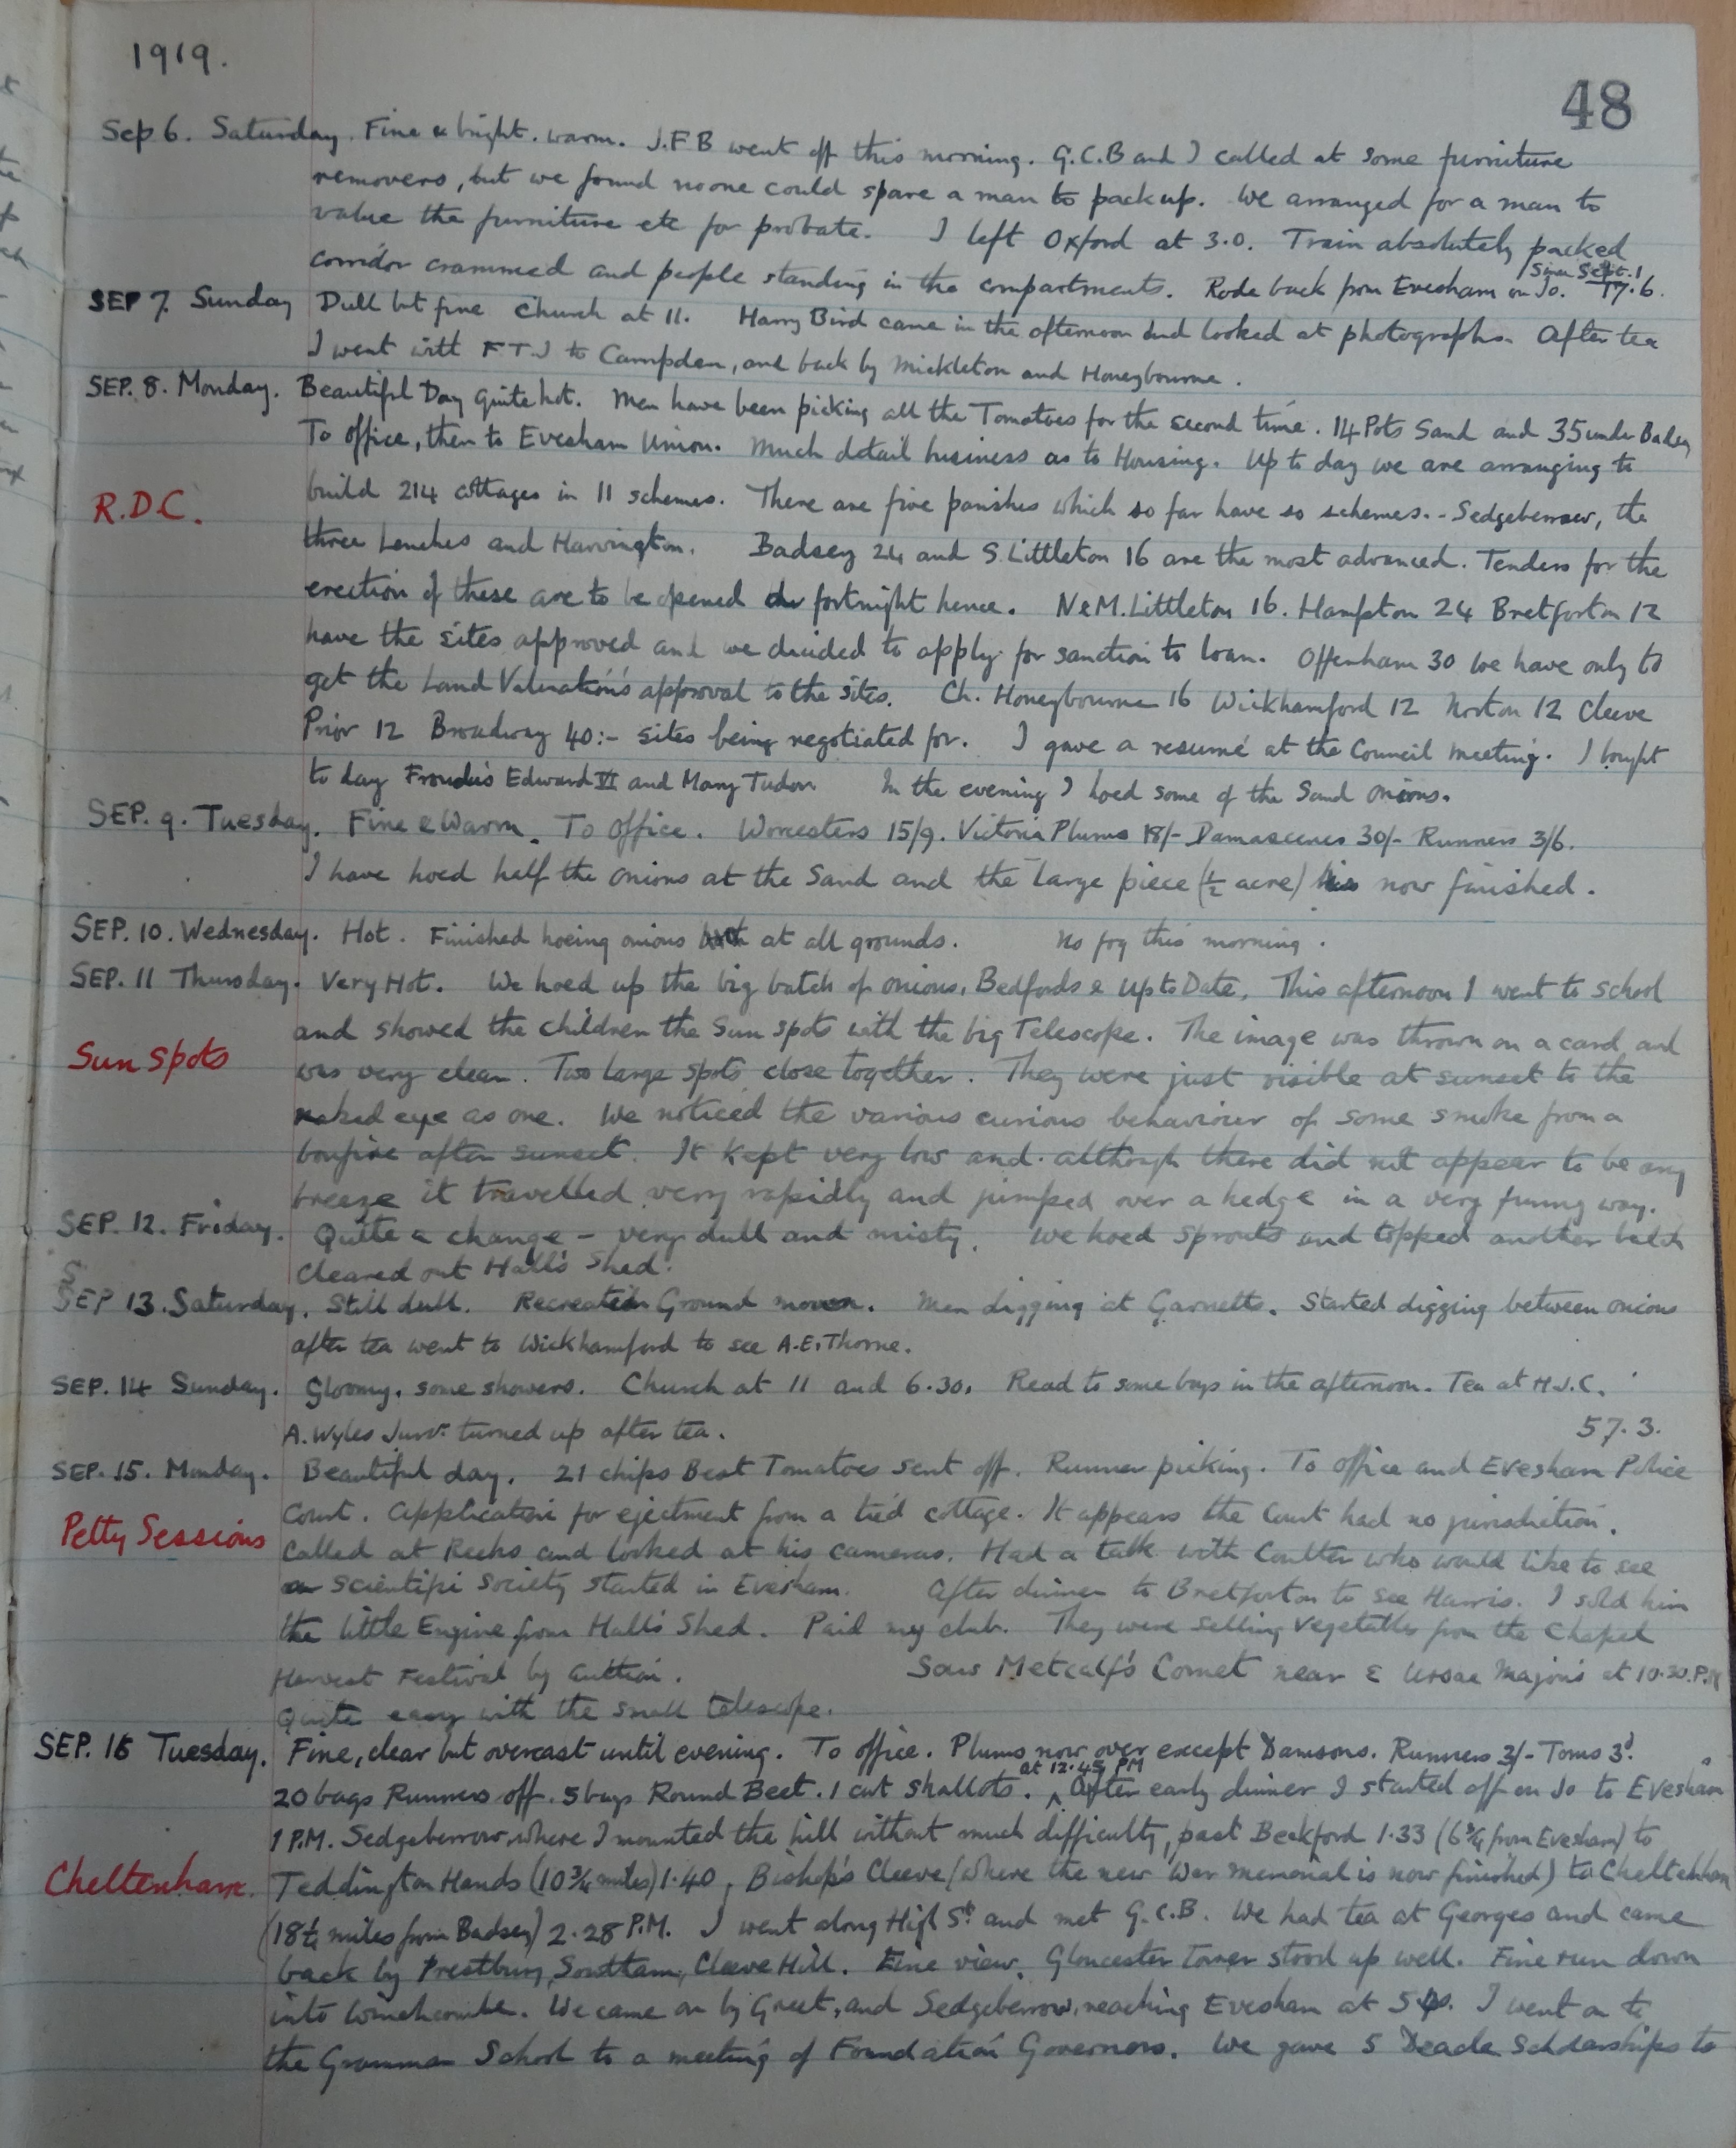 1919.
48
Sep 6. Saturday. Fine & bright. warm. J.F B went off this morning. G.C.B and I called at some furniture
removers, but we found no one could spare a man to pack up. We arranged for a man to
value the furniture etc for probate. I left Oxford at 3.0. Train absolutely packed
corridor crammed and people standing in the compartments. Rode back from Evesham on Jo. Since Sept. 1 17.6.
SEP 7. Sunday Dull but fine Church at 11. Harry Bird came in the afternoon and looked at photographs. After tea
I went with F T J to Campden, and back by Mickleton and Honeybourne.
SEP. 8. Monday. Beautiful Day quite hot. Men have been picking all the Tomatoes for the second time. 14 Pots Sand and 35 under Badsey
To office, then to Evesham Union. Much detail business as to Housing. Up to day we are arranging to
R.D.C. build 214 cottages in 11 schemes. There are five parishes which so far have so schemes. - Sedgeberrow, the
three Lenches and Harvington. Badsey 24 and S. Littleton 16 are the most advanced. Tenders for the
erection of these are to be opened fortnight hence. N & M. Littleton 16. Hampton 24 Bretforton 12
have the sites approved and we decided to apply for sanction to loan. Offenham 30 we have only to
get the Land Valuation's approval to the sites. Ch. Honeybourne 16 Wickhamford 12 Norton 12 Cleeve
Prior 12 Broadway 40:- sites being negotiated for. I gave a resumé at the Council meeting. I bought
to day Froude's Edward VI and Mary Tudor In the evening I hoed some of the Sand onions.
SEP. 9. Tuesday. Fine & Warm. To Office. Worcesters 15/9. Victoria Plums 18/- Damascenes 30/- Runners 3/6.
I have hoed half the onions at the Sand and the large piece (½ acre) is now finished.
SEP. 10. Wednesday. Hot. Finished hoeing onions at all grounds. No fog this morning.
SEP. 11 Thursday. Very Hot. We hoed up the big batch of onions, Bedfords & Up to Date. This afternoon I went to school
and showed the children the Sun spots with the big Telescope. The image was thrown on a card and
Sun Spots was very clear. Two large spots close together. They were just visible at sunset to the
naked eye as one. We noticed the various curious behaviour of some smoke from a
bonfire after sunset. It kept very low and although there did not appear to be any
breeze it travelled very rapidly and jumped over a hedge in a very funny way.
SEP. 12. Friday. Quite a change - very dull and misty. We hoed sprouts and topped another batch
Cleared out Hall's Shed.
SEP 13. Saturday. Still dull. Recreation Ground mown. Men digging at Garnetts. Started digging between onions
after tea went to Wickhamford to see A.E. Thorne.
SEP. 14 Sunday. Gloomy, some showers. Church at 11 and 6.30. Read to some boys in the afternoon. Tea at H.J.C.
A. Wyles Junr. turned up after tea. 57.3.
SEP. 15. Monday. Beautiful day. 21 chips Best Tomatoes sent off. Runner picking. To office and Evesham Police
Court. Application for ejectment from a tied cottage. It appears the Court had no jurisdiction.
Petty Sessions Called at Reeks and looked at his cameras. Had a talk with Coulter who would like to see
a scientifi Society started in Evesham. After dinner to Bretforton to see Harris. I sold him
the little Engine from Hall's Shed. Paid my club. They were selling vegetables from the Chapel
Harvest Festival by auction. Saw Metcalf's Comet near ε Ursae Majoris at 10.30. P.M
Quite easy with the small telescope.
SEP. 16 Tuesday. Fine, clear but overcast until evening. To office. Plums now over except Damsons. Runners 3/- Toms 3d.
20 bags Runners off. 5 bags Round Beet. 1 cwt Shallots. at 12.45 PM After early dinner I started off on Jo to Evesham
1 P.M. Sedgeberrow, where I mounted the hill without much difficulty, past Beckford 1.33 (6¾ from Evesham) to
Cheltenham. Teddington Hands (10¾ miles) 1.40, Bishop's Cleeve (where the new War Memorial is now finished) to Cheltenham
(18½ miles from Badsey) 2.28 P.M. I went along High St. and met G.C.B. We had tea at Georges and came
back by Prestbury, Southam, Cleeve Hill. Fine view. Gloucester Tower stood up well. Fine run down
into Winchcombe. We came on by Greet, and Sedgeberrow, reaching Evesham at I went on to
the Grammar School to a meeting of Foundation Governors. We gave 5 Deacle Scholarships to